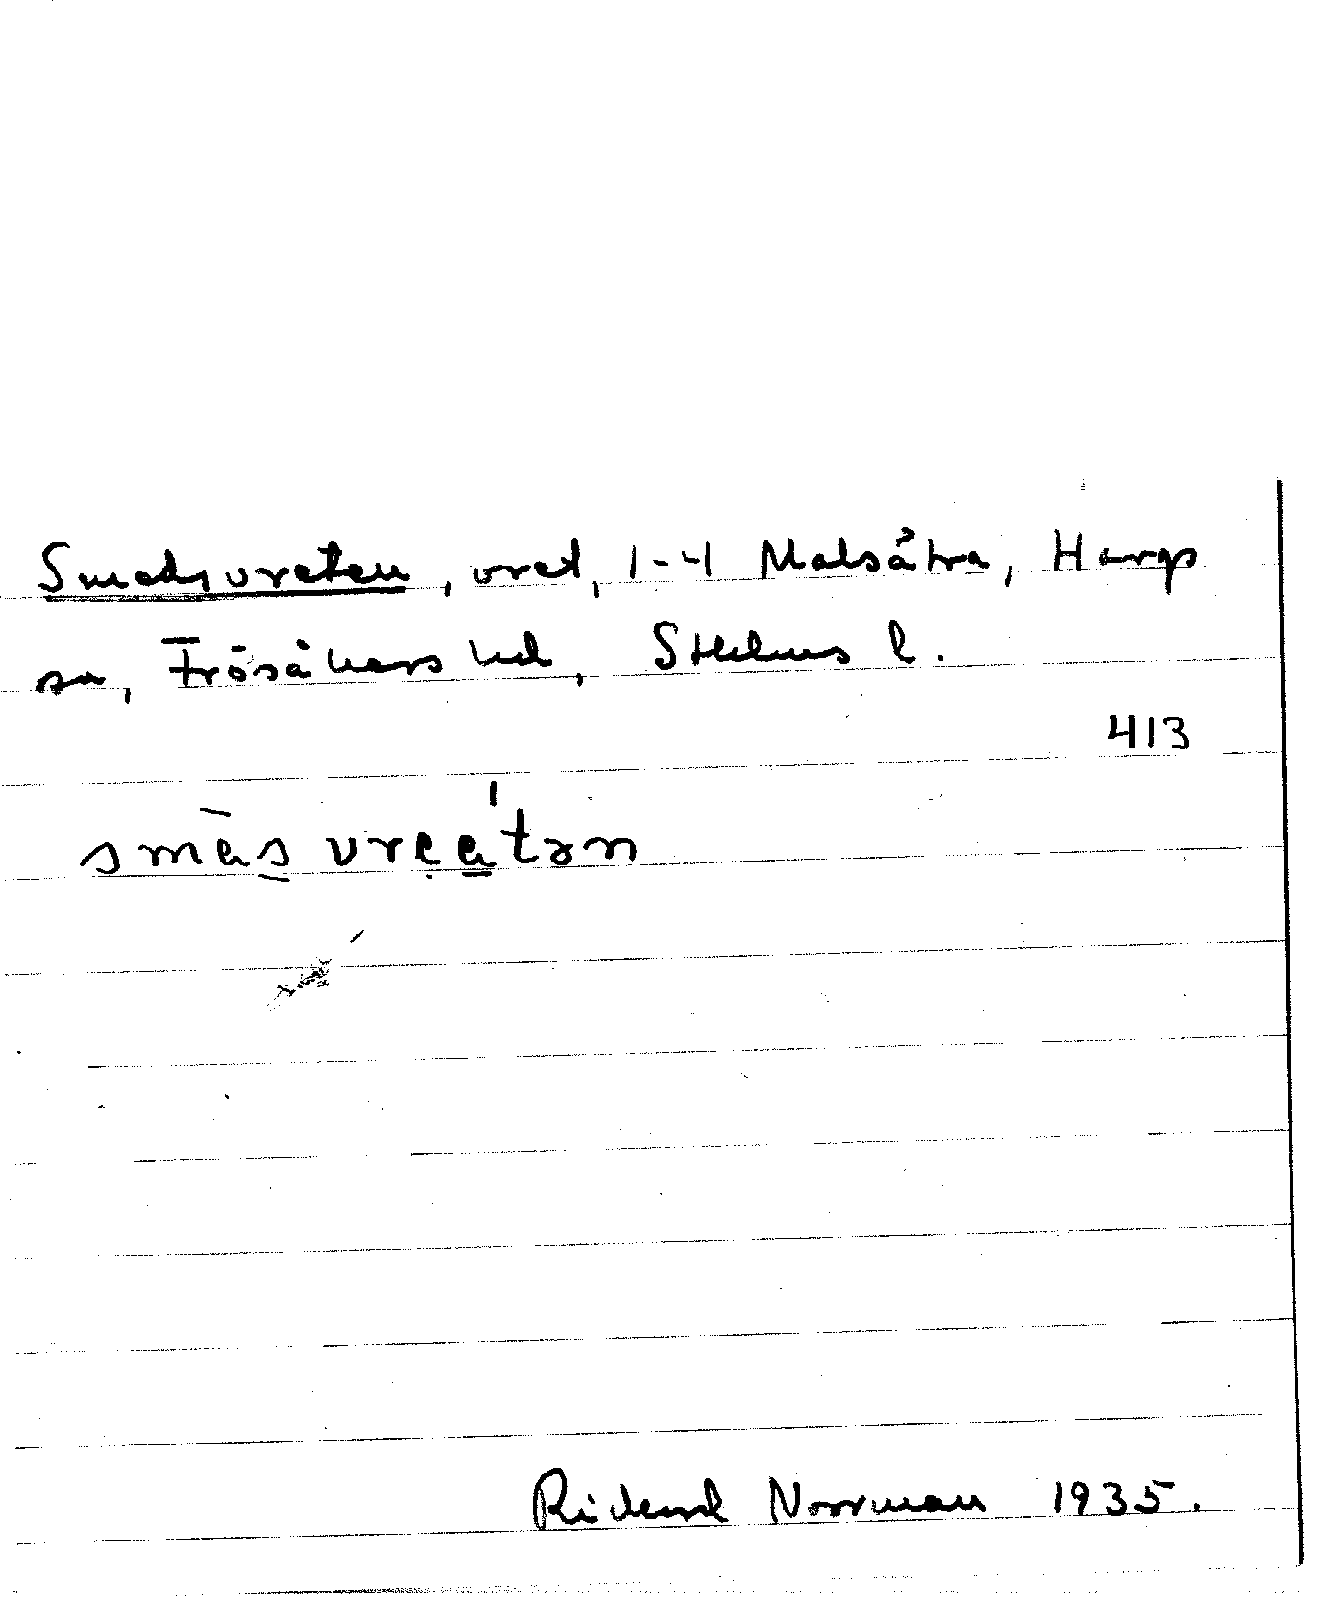 Smedsvreten, vret, 1-4 Malsätra, Hargs
sn, Frösåkers hd, Sthlms l.
413
smès vreatən
Rickard Norrman 1935.